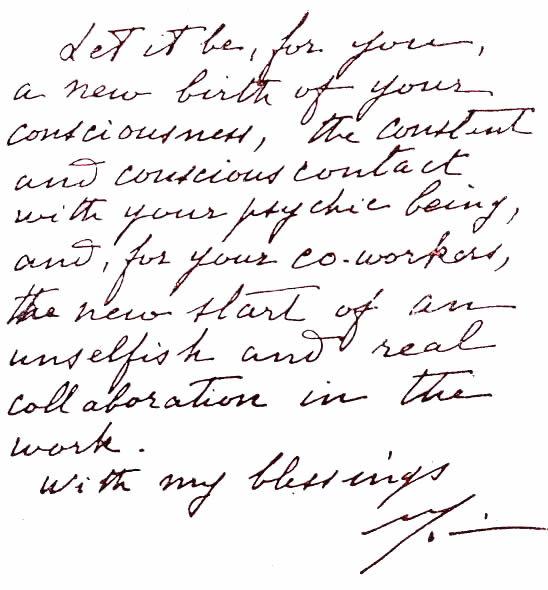 Let it be, for you,
a new birth of your
consciousness, the constant
and conscious contact
with your psychic being,
and, for your co-workers,
the new start of an
unselfish and real
collaboration in the
work.
with my blessings